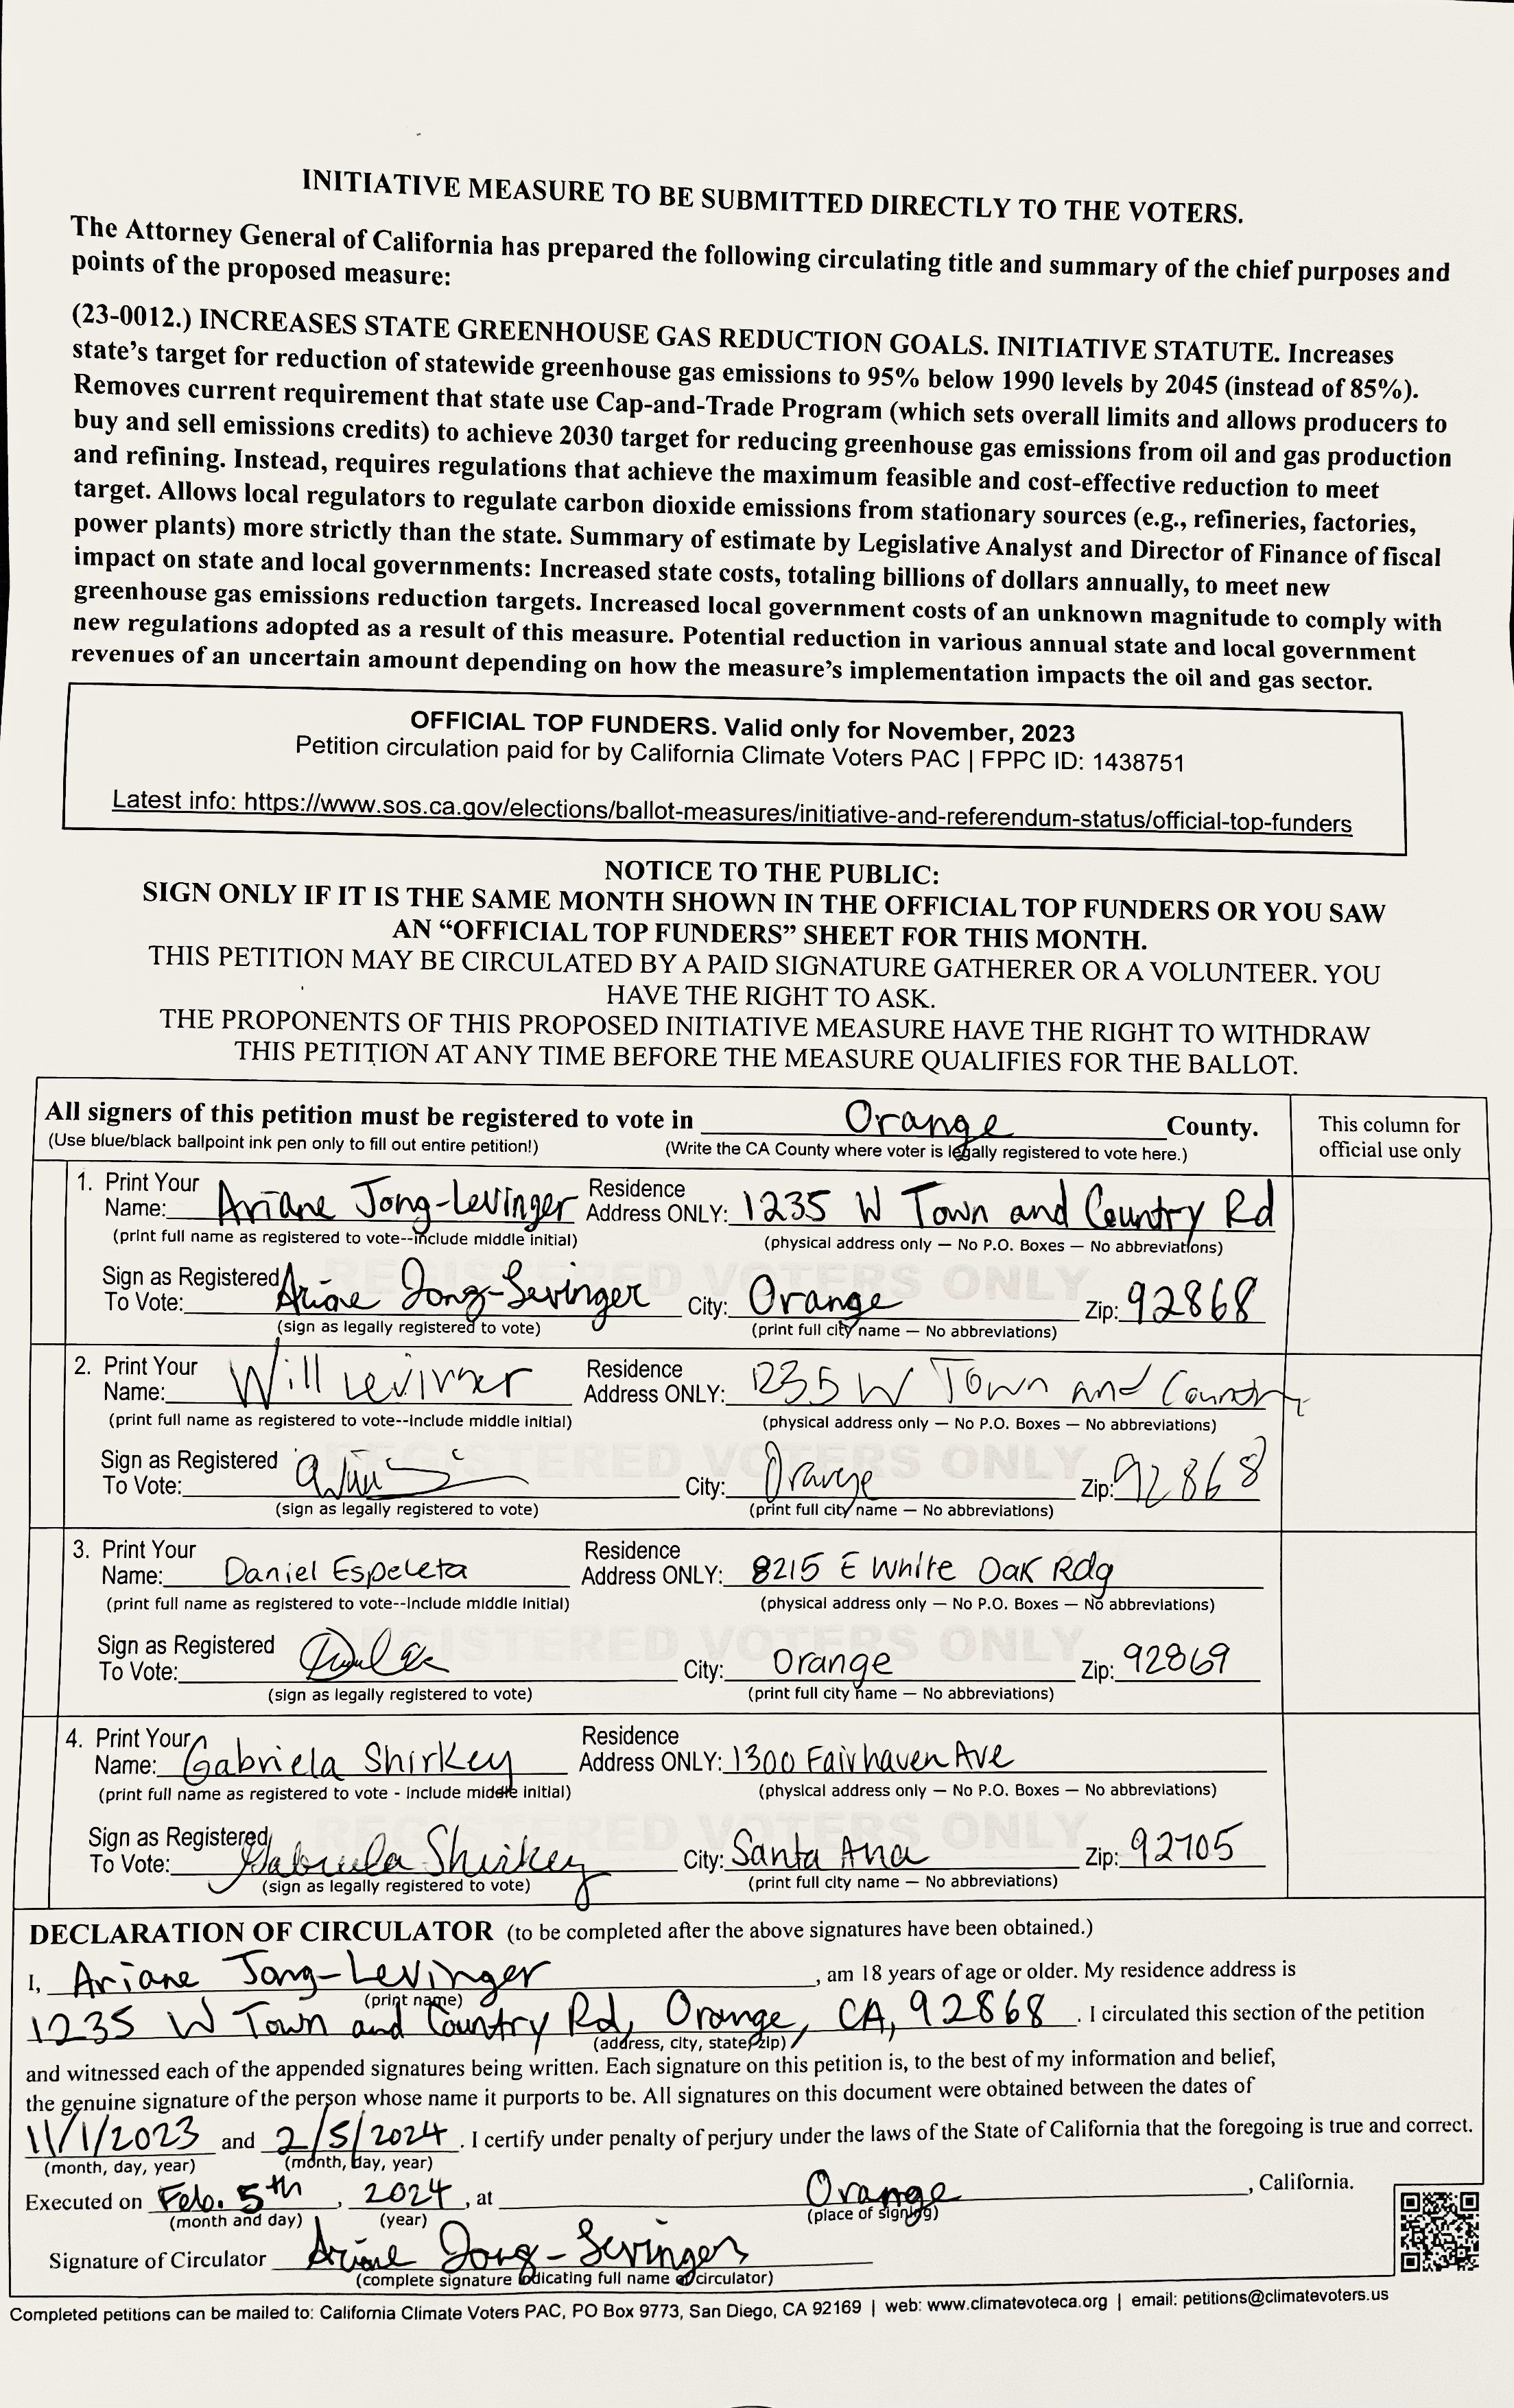 INITIATIVE MEASURE TO BE SUBMITTED DIRECTLY TO THE VOTERS.
The Attorney General of California has prepared the following circulating title and summary of the chief purposes and
points of the proposed measure:
(23-0012.) INCREASES STATE GREENHOUSE GAS REDUCTION GOALS. INITIATIVE STATUTE. Increases
state's target for reduction of statewide greenhouse gas emissions to 95% below 1990 levels by 2045 (instead of 85%).
Removes current requirement that state use Cap-and-Trade Program (which sets overall limits and allows producers to
buy and sell emissions credits) to achieve 2030 target for reducing greenhouse gas emissions from oil and gas production
and refining. Instead, requires regulations that achieve the maximum feasible and cost-effective reduction to meet
target. Allows local regulators to regulate carbon dioxide emissions from stationary sources (e.g., refineries, factories,
power plants) more strictly than the state. Summary of estimate by Legislative Analyst and Director of Finance of fiscal
impact on state and local governments: Increased state costs, totaling billions of dollars annually, to meet new
greenhouse gas emissions reduction targets. Increased local government costs of an unknown magnitude to comply with
new regulations adopted as a result of this measure. Potential reduction in various annual state and local government
revenues of an uncertain amount depending on how the measure's implementation impacts the oil and gas sector.
OFFICIAL TOP FUNDERS. Valid only for November, 2023
Petition circulation paid for by California Climate Voters PAC | FPPC ID: 1438751
Latest info: https://www.sos.ca.gov/elections/ballot-measures/initiative-and-referendum-status/official-top-funders
NOTICE TO THE PUBLIC:
SIGN ONLY IF IT IS THE SAME MONTH SHOWN IN THE OFFICIAL TOP FUNDERS OR YOU SAW
AN “OFFICIAL TOP FUNDERS” SHEET FOR THIS MONTH.
THIS PETITION MAY BE CIRCULATED BY A PAID SIGNATURE GATHERER OR A VOLUNTEER. YOU
HAVE THE RIGHT TO ASK.
THE PROPONENTS OF THIS PROPOSED INITIATIVE MEASURE HAVE THE RIGHT TO WITHDRAW
THIS PETITION AT ANY TIME BEFORE THE MEASURE QUALIFIES FOR THE BALLOT.
All signers of this petition must be registered to vote in Orange County.
(Use blue/black ballpoint ink pen only to fill out entire petition!) (Write the CA County where voter is legally registered to vote here.)
This column for
official use only
1. Print Your Name: Ariane Jong-Levinger Residence Address ONLY: 1235 W Town and Country Rd
(print full name as registered to vote--include middle initial) (physical address only — No P.O. Boxes — No abbreviations)
REGISTERED VOTERS ONLY
Sign as Registered To Vote: Ariane Jong-Levinger City: Orange Zip: 92868
(sign as legally registered to vote) (print full city name — No abbreviations)
2. Print Your Name: Will Levinger Residence Address ONLY: 1235 W Town and Country
(print full name as registered to vote--include middle initial) (physical address only — No P.O. Boxes — No abbreviations)
REGISTERED VOTERS ONLY
Sign as Registered To Vote: City: Orange Zip: 92868
(sign as legally registered to vote) (print full city name — No abbreviations)
3. Print Your Name: Daniel Espeleta Residence Address ONLY: 8215 E White Oak Rdg
(print full name as registered to vote--include middle initial) (physical address only — No P.O. Boxes — No abbreviations)
REGISTERED VOTERS ONLY
Sign as Registered To Vote: City: Orange Zip: 92869
(sign as legally registered to vote) (print full city name — No abbreviations)
4. Print Your Name: Gabriela Shirkey Residence Address ONLY: 1300 Fairhaven Ave
(print full name as registered to vote - include middle initial) (physical address only — No P.O. Boxes — No abbreviations)
REGISTERED VOTERS ONLY
Sign as Registered To Vote: Gabriela Shirkey City: Santa Ana Zip: 92705
(sign as legally registered to vote) (print full city name — No abbreviations)
DECLARATION OF CIRCULATOR (to be completed after the above signatures have been obtained.)
I, Ariane Jong-Levinger, am 18 years of age or older. My residence address is
(print name)
1235 W Town and Country Rd, Orange, CA, 92868. I circulated this section of the petition
(address, city, state, zip)
and witnessed each of the appended signatures being written. Each signature on this petition is, to the best of my information and belief,
the genuine signature of the person whose name it purports to be. All signatures on this document were obtained between the dates of
11/1/2023 and 2/5/2024. I certify under penalty of perjury under the laws of the State of California that the foregoing is true and correct.
(month, day, year) (month, day, year)
Executed on Feb. 5th, 2024, at Orange, California.
(month and day) (year) (place of signing)
Signature of Circulator Ariane Jong-Levinger
(complete signature indicating full name of circulator)
Completed petitions can be mailed to: California Climate Voters PAC, PO Box 9773, San Diego, CA 92169 | web: www.climatevoteca.org | email: petitions@climatevoters.us